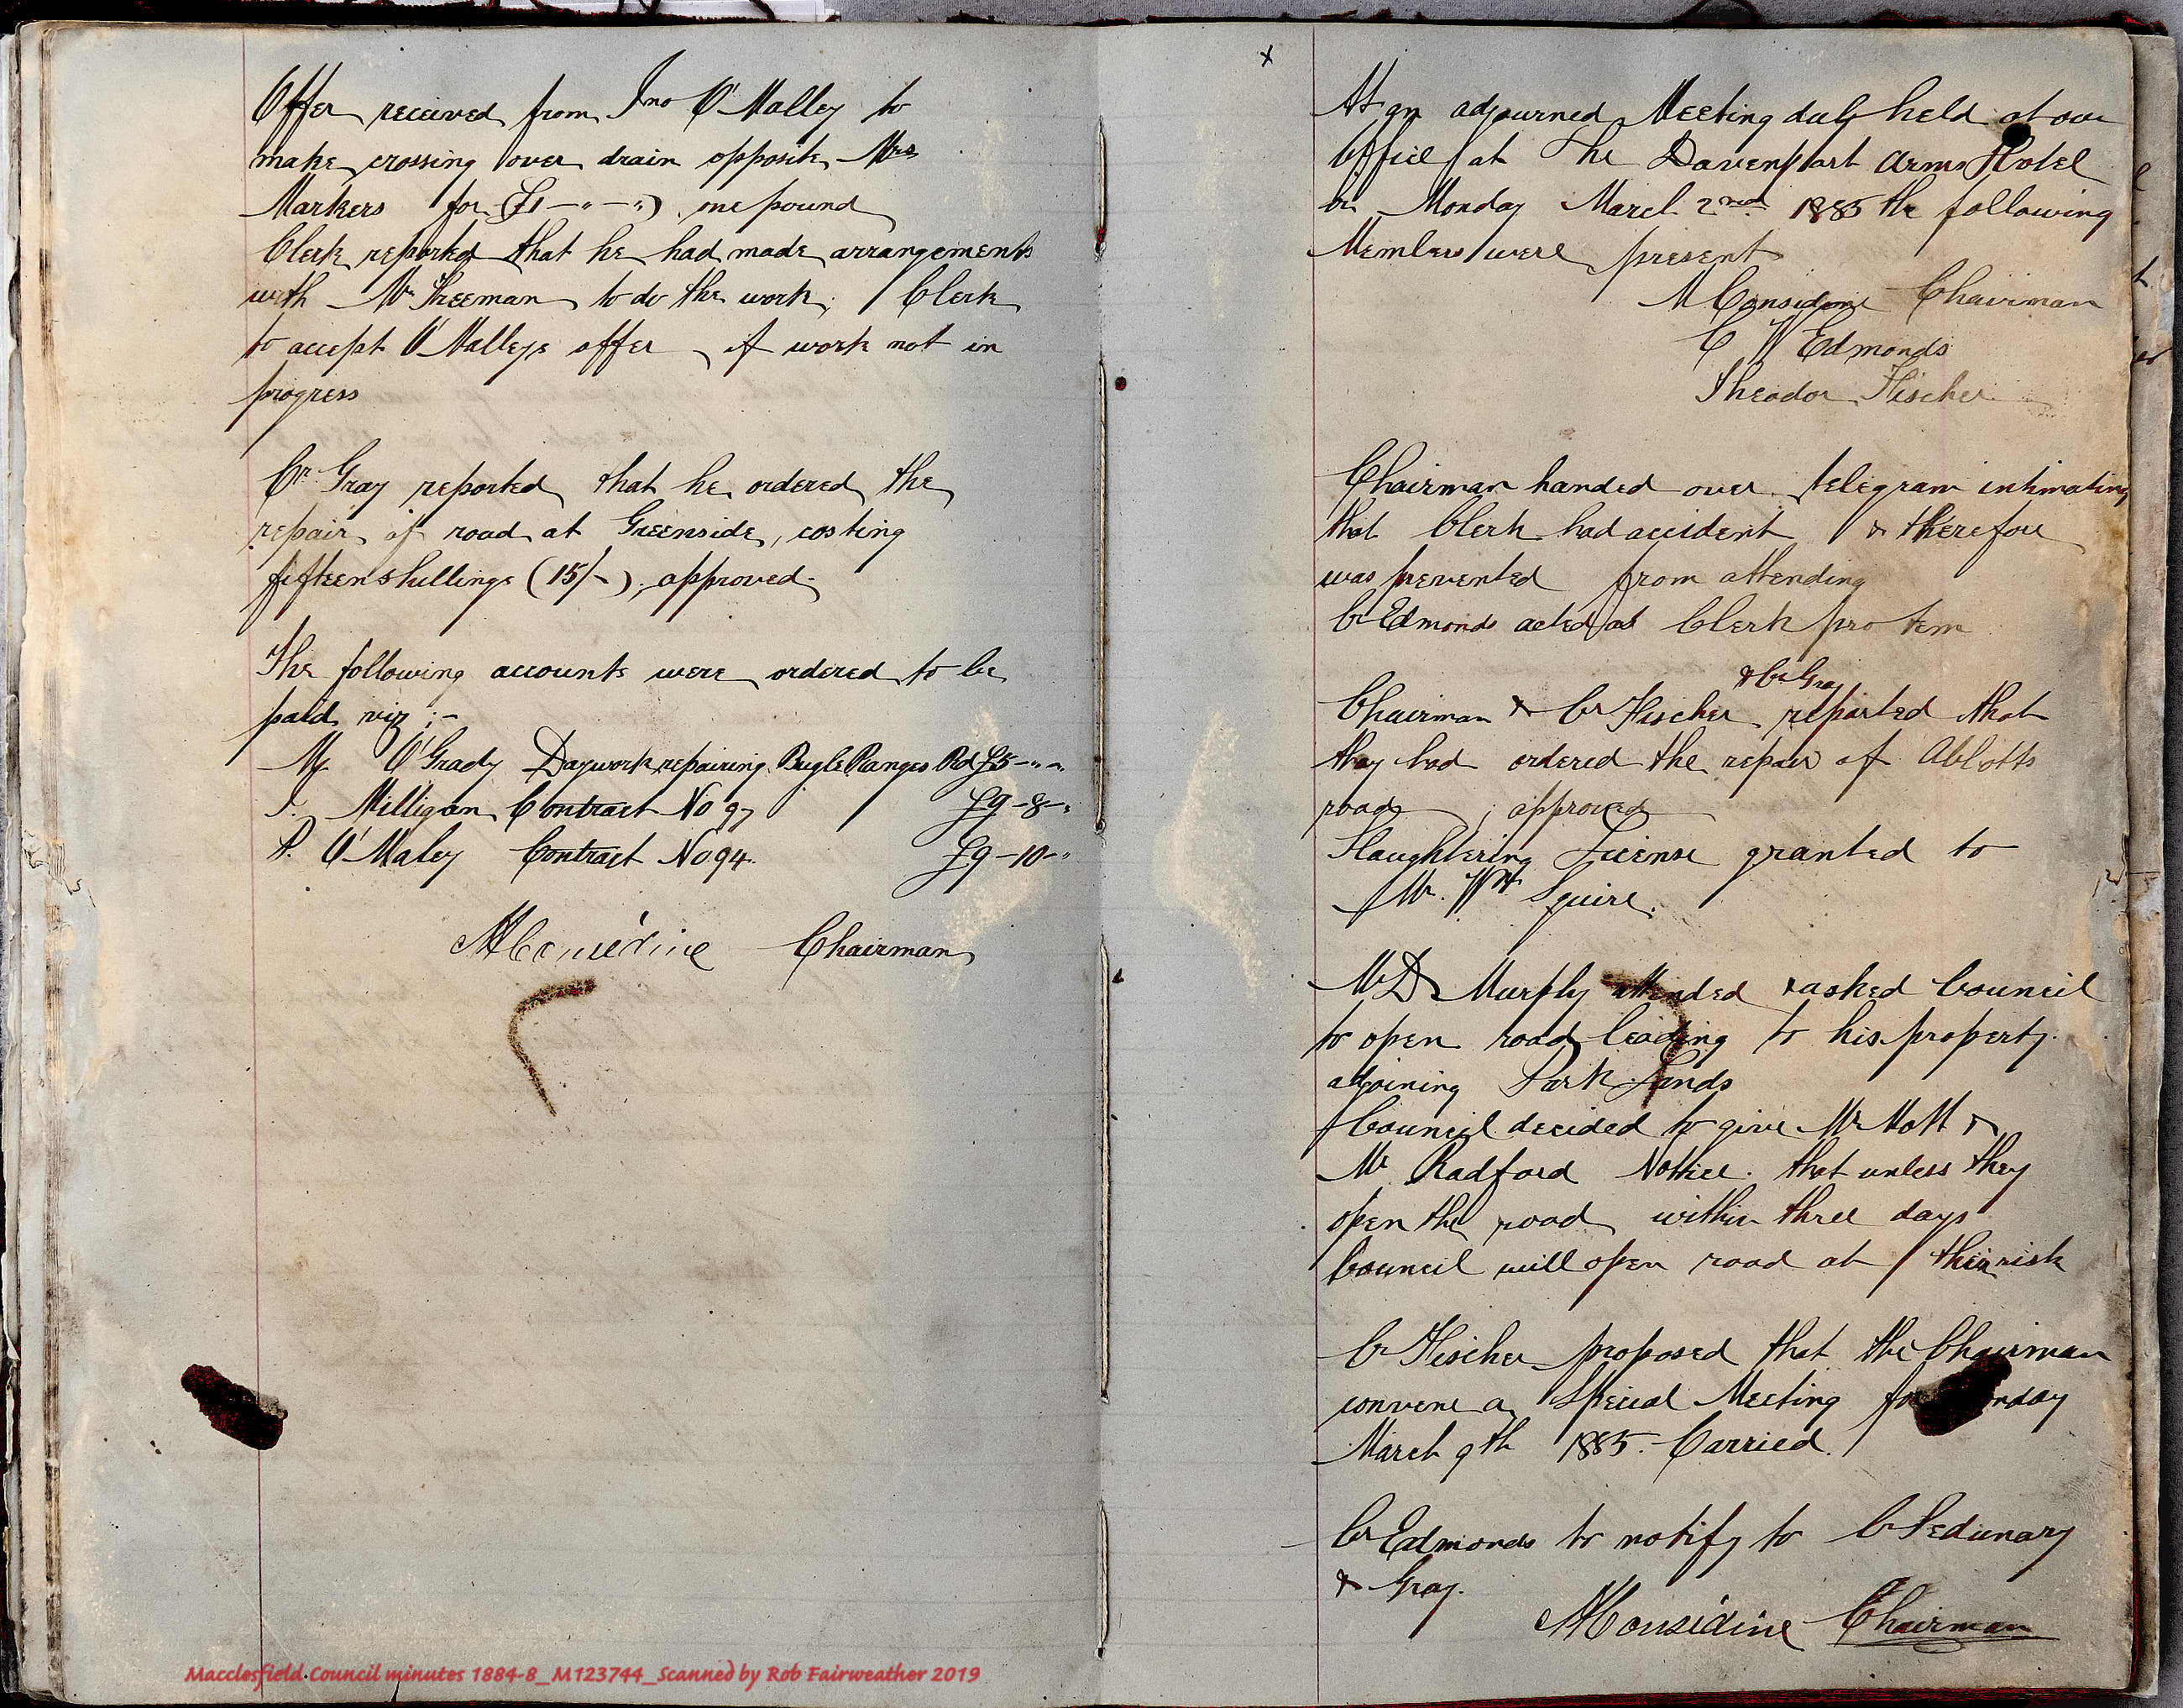 Offer received from Jno O'Malley to
make crossing over drain opposite Mrs
Markers for £1-"-") one pound
Clerk reported that he had made arrangements
with Mr Freeman to do the work; Clerk
to accept O'Malleys offer if work not in
progress
Cr Gray reported that he ordered the
repair of road at Greenside, costing
fifteen shillings (15/-) approved-
The following accounts were ordered to be
paid viz ;-
O'Grady Daywork repairing Bugle Ranges Rd £5-"-"
Milligan Contract No 97 £9-8-"
P. O'Maley Contract No 94. £9-10-"
M Considine Chairman
x
At an adjourned Meeting duly held at our
Office at The Davenport Arms Hotel
on Monday March 2nd 1885 the following
Members were present
M Considine Chairman
C W Edmonds
Theodor Fischer
Chairman handed over telegram intimating
that Clerk had accident & therefore
was prevented from attending
Cr Edmonds acted as Clerk pro tem
& Cr Gray
Chairman & Cr Fischer reported that
they had ordered the repair of Abbotts
road ; approved
Slaughtering License granted to
Mr. Wm Squire.
Mr D Murphy attended & asked Council
to open road leading to his property.
adjoining Park Lands
Council decided to give Mr Mott &
Mr Radford Nottice. that unless they
open the road within three days
Council will open road at their risk
Cr Fischer proposed that the Chairman
convene a Special Meeting for Monday
March 9th 1885. Carried.
Cr Edmonds to notify to Cr Sedunary
& Gray.
M Considine Chairman
Macclesfield Council minutes 1884-8_M123744_Scanned by Rob Fairweather 2019